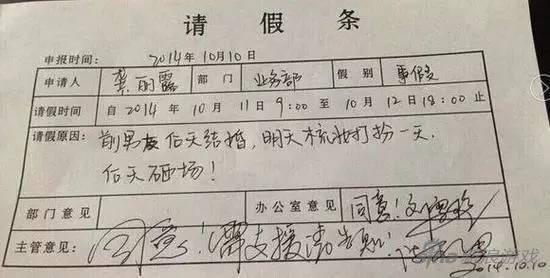 请假条
申报时间: 2014年10月10日
申请人 龚丽露 部门 业务部 假别 事假
请假时间 自2014年10月11日9:00至10月12日18:00止
请假原因: 前男友后天结婚,明天梳妆打扮一天.
后天砸场!
部门意见 办公室意见 同意!
主管意见 同意!需支援请告知!
2014.10.10